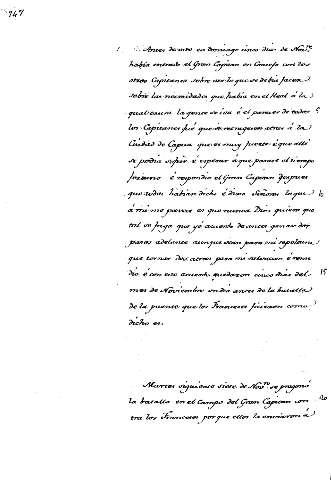 747
Antes de esto en domingo cinco dias de Nov.e
habia entrado el Gran Capitan en Consejo con dos
otros Capitanes sobre ver lo que se debia facer
sobre las necesidades que habia en el Real á la
qual causa la gente se iva é el parecer de todos 5
los Capitanes fué que se recugesen atras á la
Ciudad de Capua que es muy fuerte é que allí
se podia sofrir é esperar á que pasase el tiempo
é respondió el Gran Capitan despues
que todos habian dicho é dixo Señores lo que 10
á mí me parece es que nunca Dios quiera que
tal se faga que yo antes ganar dos
pasos adelante aunque sean para mi sepoltura
que tornar dos atras para mi salvacion é reme
dio é con esto quedaron cinco dias del 15
mes de Noviembre un dia antes de la batalla
de la puente que los Franceses ficieron como
dicho es.
Martes siguiente siete de Nov.e se pregonó
la batalla en el Campo del Gran Capitan con 20
tra los Franceses por que ellos la enviaron á